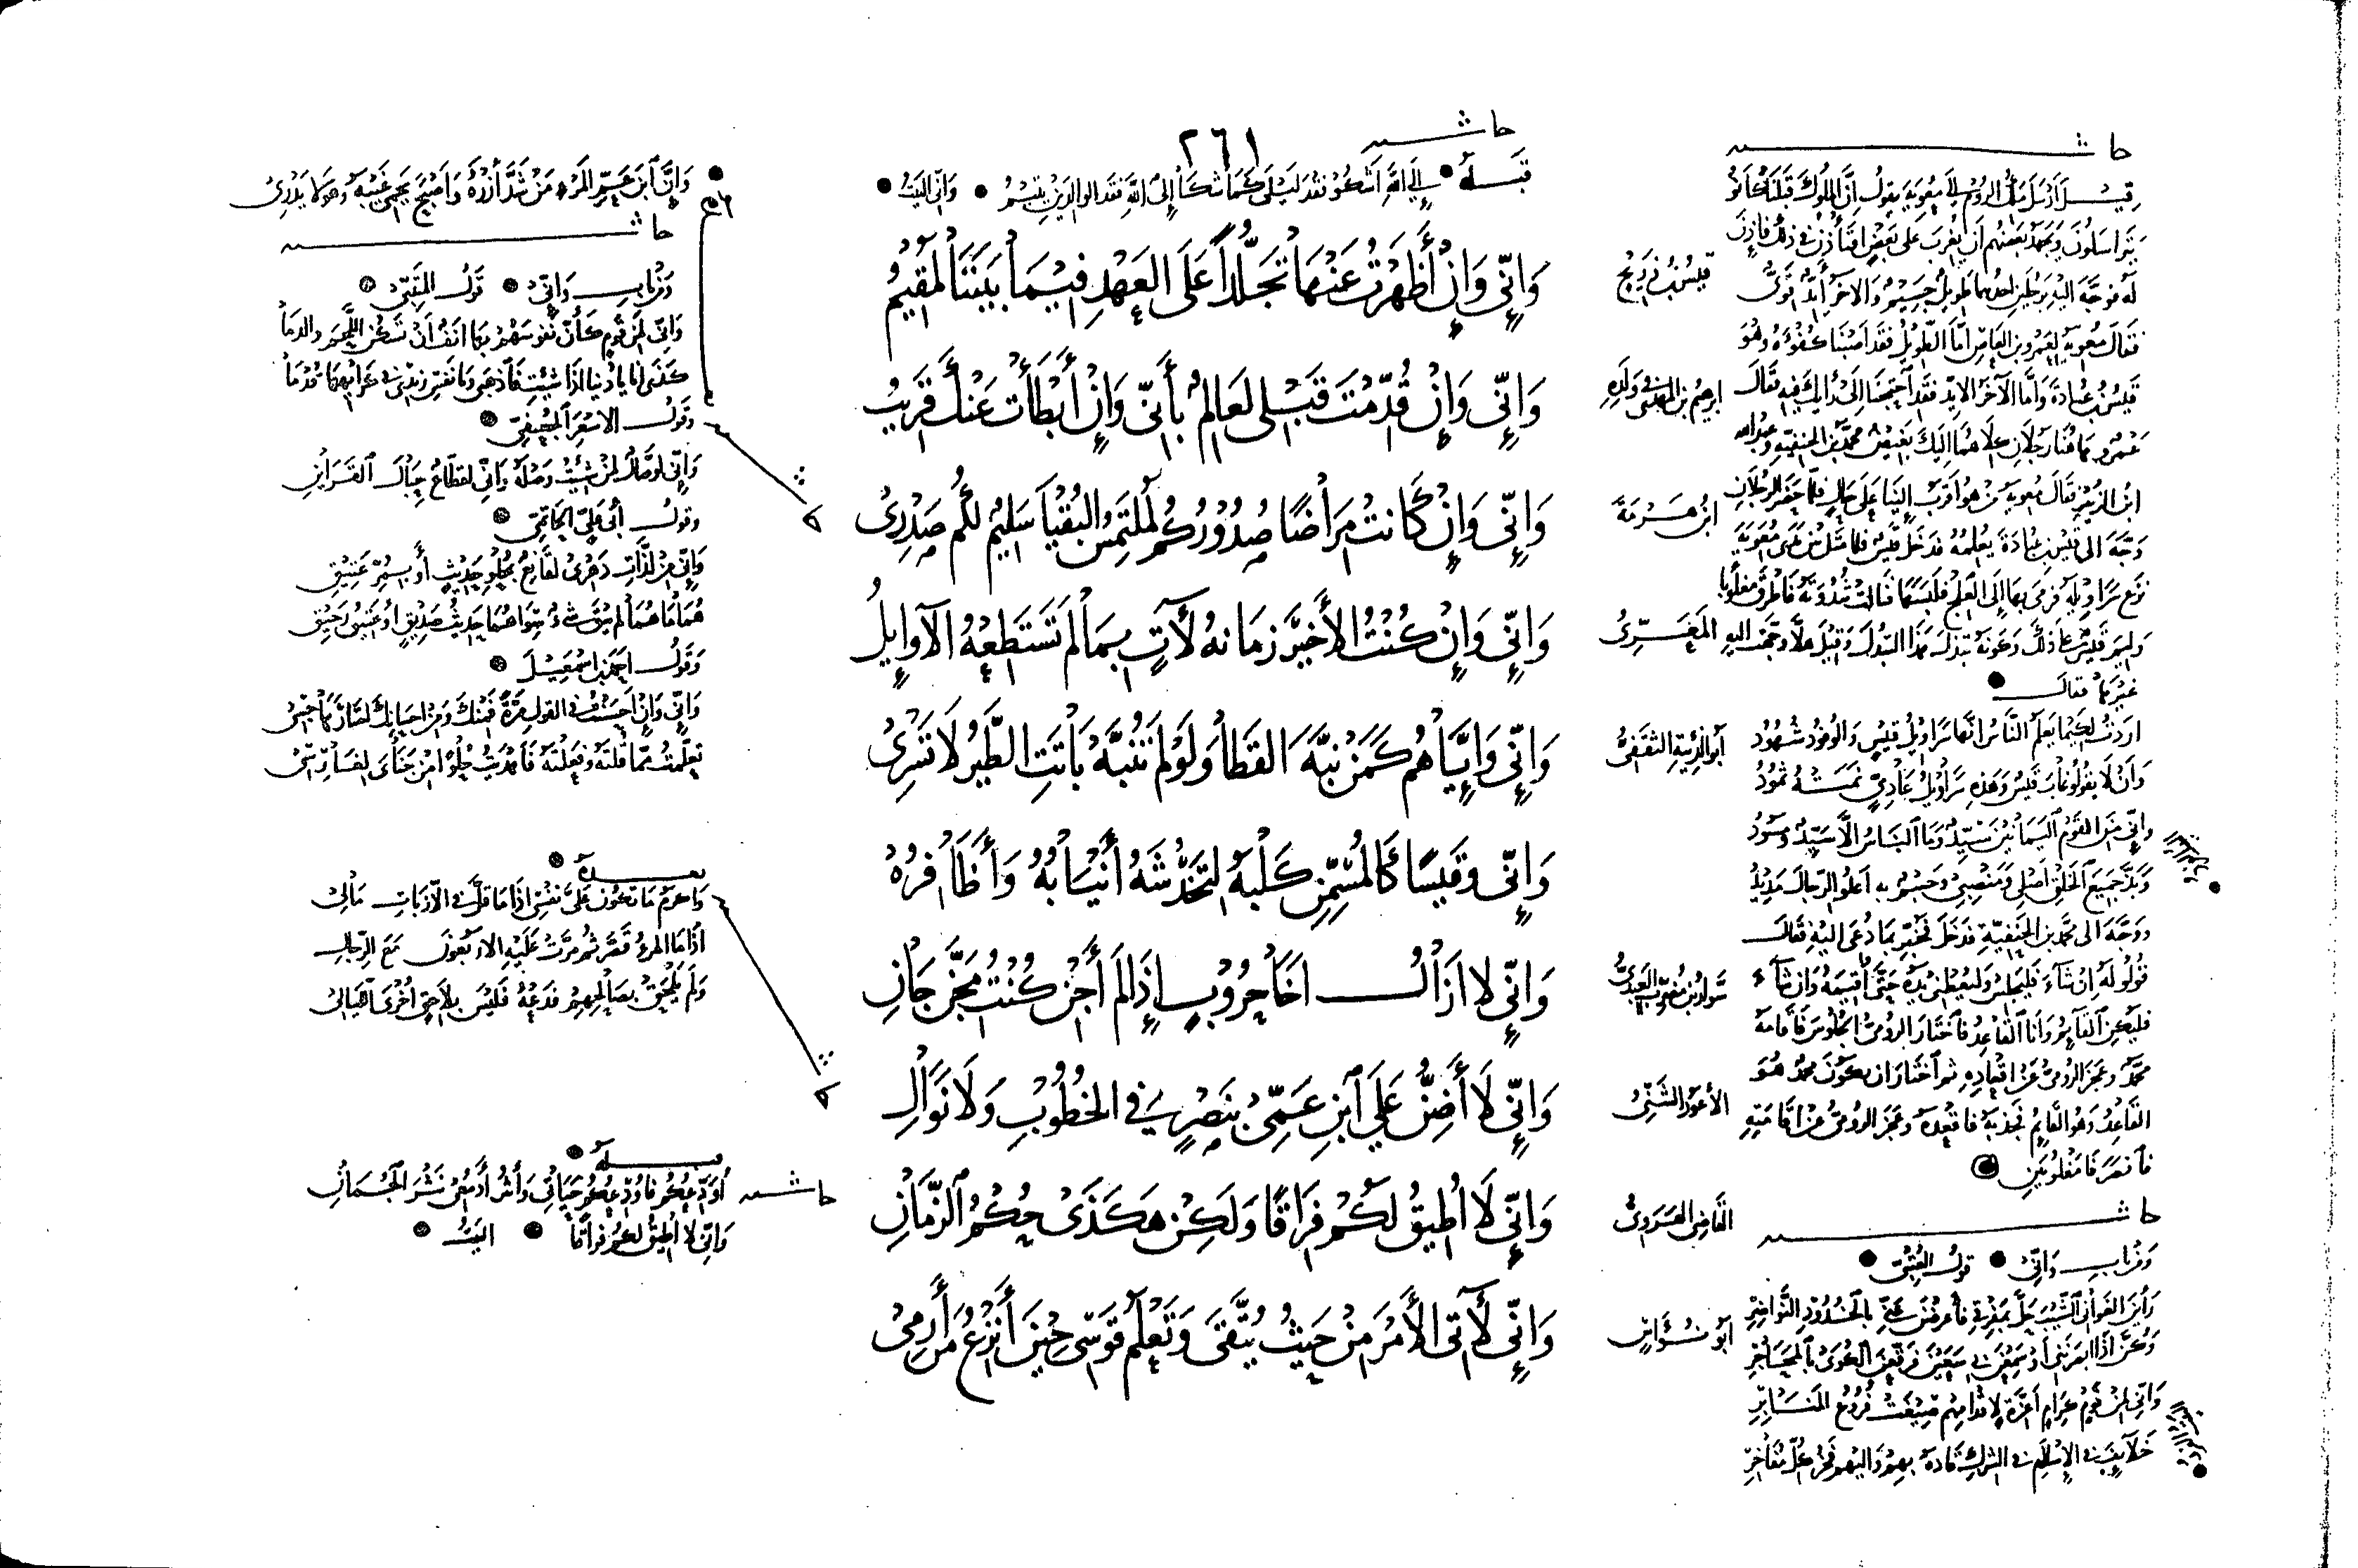 ٢٦١
حاشـــية
قبله • إلى الله أشكو فقد ليلى كما شكا إلى الله فقد الوالدين يتيم • وإني البيت •
وَإِنِّي وَإِنْ أَظْهَرْتُ عَنْهَا تَجَلُّدًا عَلَى العَهْدِ فِيمَا بَيْنَنَا لَمُقِيمُ
قيس بن ذريح
وَإِنِّي وَإِنْ قُدِّمْتَ قَبْلِي لَعَالِمٌ بِأَنِّي وَإِنْ أَبْطَأْتُ عَنْكَ قَرِيبُ
ابرهيم بن المهدى فى ولده
وَإِنِّي وَإِنْ كَانَتْ مِرَاضًا صُدُورُكُمْ لَمُلْتَمِسُ البُقْيَا سَلِيمٌ لَكُم صَدْرِي
ابن هرمة
وَإِنِّي وَإِنْ كُنْتُ الأَخِيرَ زَمَانُهُ لَآتٍ بِمَا لَمْ تَسْتَطِعْهُ الأَوَايِلُ
المعـرى
وَإِنِّي وَإِيَّاهُم كَمَنْ نَبَّهَ القَطَا وَلَوْ لَمْ تُنَبَّهْ بَاتَتِ الطَّيْرُ لَا تَسْرِي
أبو الذئبة الثقفى
وَإِنِّي وَقَيْسًا كَالمُسَمِّنِ كَلْبَهُ لِتَخْدِشَهُ أَنْيَابُهُ وَأَظَافِرُهُ
وَإِنِّي لا أَزَالُ أَخَا حُرُوبٍ إِذَا لَمْ أَجْنِ كُنْتُ مِجَنَّ جَانِ
سوار بن مضرب السعدى
وَإِنِّي لَا أَضِنُّ عَلَى ابْنِ عَمِّي بِنَصْرِي فِي الخُطُوبِ وَلَا نَوَالِ
الأعور الشنى
وَإِنِّي لَا أُطِيقُ لَكُمْ فِرَاقًا وَلَكِنْ هَكَذَى حُكْمُ الزَّمَانِ
القاضى الهروى
وَإِنِّي لَآتِي الأَمْرَ مِنْ حَيْثُ يُتَّقَى وَتَعْلَمُ قَوْسِي حِينَ أَنْزِعُ مَنْ أَرْمِي
أبو نواس
حاشـــية
قيل أرسل ملك الروم إلى معوية يقول إن الملوك قبلنا كانوا
يتراسلون ويجهد بعضهم أن يغرب على بعض أفتأذن فى ذلك فأذن
له فوجه اليه برجلين احدهما طويل جسيم والآخر أيد قوى
فقال معوية لعمرو بن العاص اما الطويل فقد اصبنا كفؤه وهو
قيس بن عبادة وأما الآخر الايد فقد احتجنا إلى رأيك فيه فقال
عمرو هاهنا رجلان كلاهما اليك بغيض محمد بن الحنفية وعبد الله
ابن الزبير فقال معوية من هو أقرب إلينا على حال فلما حضر الرجلان
وجه الى قيس بن عبادة يعلمه فدخل قيس فلما مثل بين يدى معوية
نزع سراويله فرمى بها إلى العلج فلبسها فنالت ثندوته فاطرق مغلوبا
وليم قيس على ذلك
غيرها فقال •
اردت لكيما يعلم الناس انها سراويل قيس والوفود شهود
وأن لا يقولوا غاب قيس وهذه سراويل عادي نمته ثمود
وإني من القوم اليمانين سيد وما الناس إلا سيد ومسود
وبذ جميع الخلق اصلى ومنصبى وجسم به أعلو الرجال مديد
ووجه الى محمد بن الحنفية فدخل فخبر بما دعى اليه فقال
قولوا له إن شاء فليجلس وليعطنى يده حتى أقيمه وإن شاء
فليكن القائم وأنا القاعد فاختار الرومى الجلوس فأقامه
محمد وعجز الرومى عن اقعاده ثم اختار ان يكون محمد هو
القاعد وهو القايم فجذبه فاقعده وعجز الرومى عن اقامته
فانصرفا مغلوبين •
حاشـــية
ومن باب وإنى • قول العتبى •
رأين الغوانى الشيب بمفرقى فأعرضن عنى بالخدود النواضر
وكن إذا ابصرننى أو سمعن بى سعين فرقعن الكوى بالمحاجر
وإنى من قوم كرام أعزة لاقدامهم صيغت فروع المنابر
خلايف فى الإسلام فى الشرك قادة بهم واليهم فخر كل مفاخر
• وإن ابن عم المرء من شد أزره وأصبح يحمى غيبه وهو لا يدرى
حاشـــية
ومن باب وإنى • قول المتنبى •
وإنى لمن قوم كأن نفوسهم بها انف أن تسكن اللحم والدما
كذى أنا يا دنيا اذا شئت فاذهبى ويا نفس زيدى فى كرايهها قدما
وقول الاسعر الجعفى •
وإنى لوصال لمن شئت وصله وإنى لقطاع حبال القراين
وقول أبى على الحاتمى •
وإنى من لذات دهرى لقانع بحلو حديث أو بمر عتيق
هما ما هما لم يبق شىء سواهما حديث صديق أو عتيق رحيق
وقول احمد بن اسمعيل •
تعلمت مما قلته وفعلته
بعده •
وأكرم ما تكون على نفسى اذا ما قل فى الأزمات مالى
اذا ما المرء قصر ثم مرت عليه الاربعون مع الرجال
ولم يلحق بصالحهم فدعه فليس بلاحق أخرى الليالى
قبله •
حاشـــية
أودعكم فأودعكم حياتى وأنثر أدمعى نثر الجمان
وإنى لا أطيق لكم فراقا • البيت •